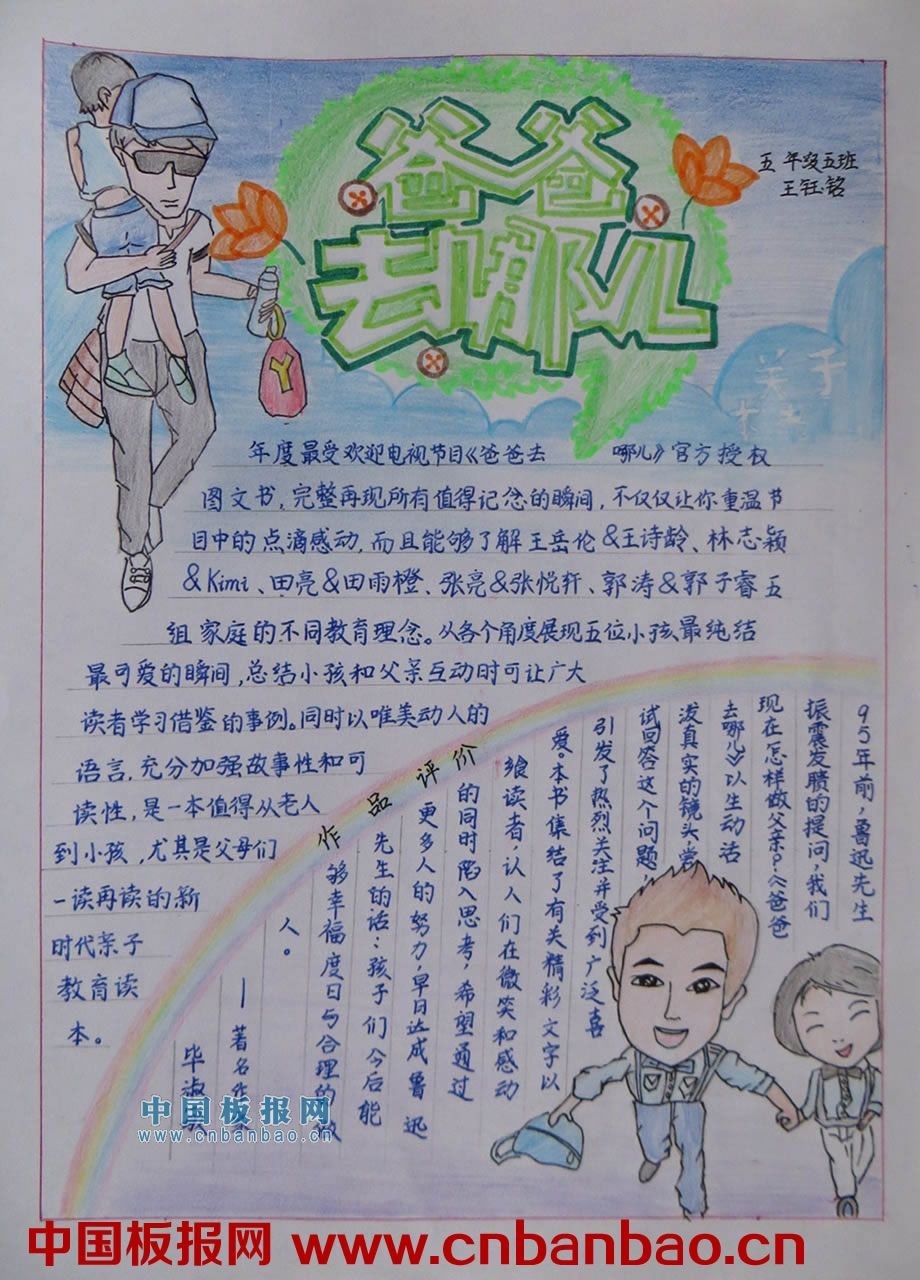 爸爸
去哪儿
五年级五班
王钰铭
关于
年度最受欢迎电视节目《爸爸去 哪儿》官方授权
图文书，完整再现所有值得记念的瞬间，不仅仅让你重温节
目中的点滴感动，而且能够了解王岳伦&王诗龄、林志颖
&Kimi、田亮&田雨橙、张亮&张悦轩、郭涛&郭子睿五
组家庭的不同教育理念。从各个角度展现五位小孩最纯结
最可爱的瞬间，总结小孩和父亲互动时可让广大
读者学习借鉴的事例。同时以唯美动人的
语言，充分加强故事性和可
读性，是一本值得从老人
到小孩，尤其是父母们
一读再读的新
时代亲子
教育读
本。
作品评价
95年前，鲁迅先生
振震发聩的提问，我们
现在怎样做父亲？《爸爸
去哪儿》以生动活
泼真实的镜头尝
试回答这个问题，
引发了热烈关注并受到广泛喜
爱。本书集结了有关精彩文字以
飨读者，认人们在微笑和感动
的同时陷入思考，希望通过
更多人的努力，早日达成鲁迅
先生的话：孩子们今后能
够幸福度日与合理的做
人。
——著名作家
毕淑
中国板报网
www.cnbanbao.cn
中国板报网 www.cnbanbao.cn